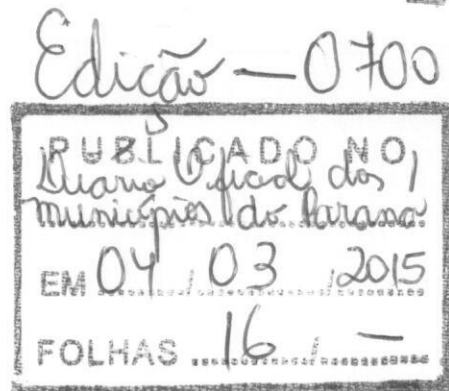 Edição — 0700
PUBLICADO NO
Diario Oficial dos
Municípios do Parana
EM 04 / 03 / 2015
FOLHAS 16 / —